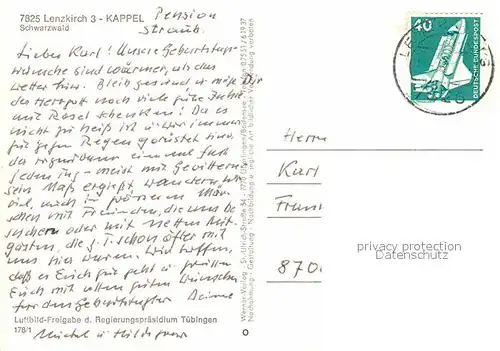 7825 Lenzkirch 3 - KAPPEL
Schwarzwald
Pension
Straub
Lieber Karl! Unsere Geburtstags-
wünsche sind wärmer, als das
Wetter hier. Bleib gesund u. möge Dir
der Herrgott noch viele gute Jahre
mit Rosel schenken! Da es
nicht zu heiß ist u. wir immer
für gegen Regen gerüstet sind,
da irgendwann einmal fast
jeden Tag - meist mit Gewittern -
sein Maß ergießt, wandern wir
viel, auch in grösseren
schen mit Freunden, die uns be
suchen oder mit netten Mit
gästen, die z. T. schon öfter mit
uns hier waren. Wir hoffen,
daß es Euch gut geht u. grüßen
Euch mit allen guten Wünschen
für den Geburtstag Deine
Luftbild-Freigabe d. Regierungspräsidium Tübingen
178/1
und Hildegard
Werner-Verlag - St.-Ulrich-Straße 34 - 7770 Überlingen/Bodensee - Telefon 07551/61937
40
DEUTSCHE BUNDESPOST
Herrn
Karl
870
privacy protection
Datenschutz